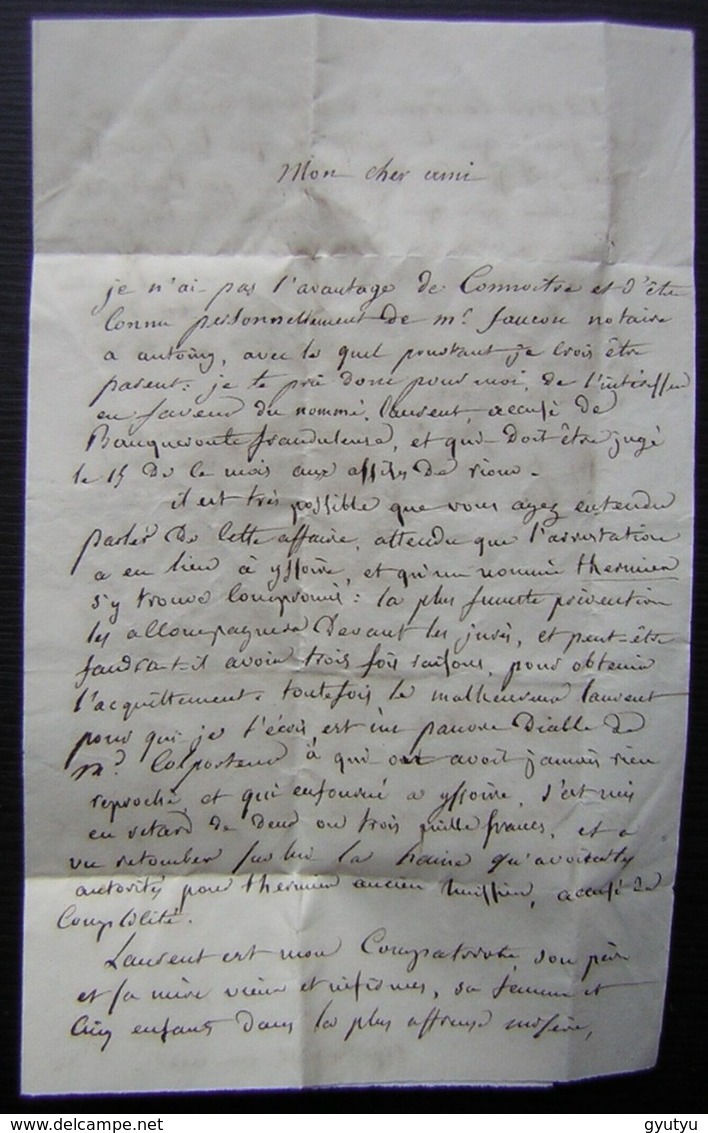 Mon cher ami
je n'ai pas l'avantage de Connoitre et d'être
connu personnellement de mr. faucon notaire
a antoing, avec le quel pourtant je crois être
parent: je te prie donc pour moi, de l'intéresser
en faveur du nommé, laurent, accusé de
Banqueroute frauduleuse, et qui doit être jugé
le 15 de ce mois aux assises de riom.
il est très possible que vous ayez entendu
parler de cette affaire, attendu que l'arrestation
a eu lieu à yssoire, et qu'un nommé thermier
s'y trouve compromis: la plus funeste prévention
les accompagnera devant les jurés, et peut-être
faudra-t-il avoir trois fois raisons, pour obtenir
l'acquittement. toutefois le malheureux laurent
pour qui je t'écris, est un pauvre diable de
md. Colporteur à qui on avoit jamais rien
reproché, et qui enfourné a yssoire, s'est mis
en retard de deux ou trois mille francs, et a
vu retomber sur lui la haine qu'avoient les
autorités pour thermier ancien huissier, accusé de
Complicité.
Laurent est mon Compatriote son père
et sa mère vieux et infirmes, sa femme et
cinq enfants dans la plus affreuse misère,
www.delcampe.net
gyutyu